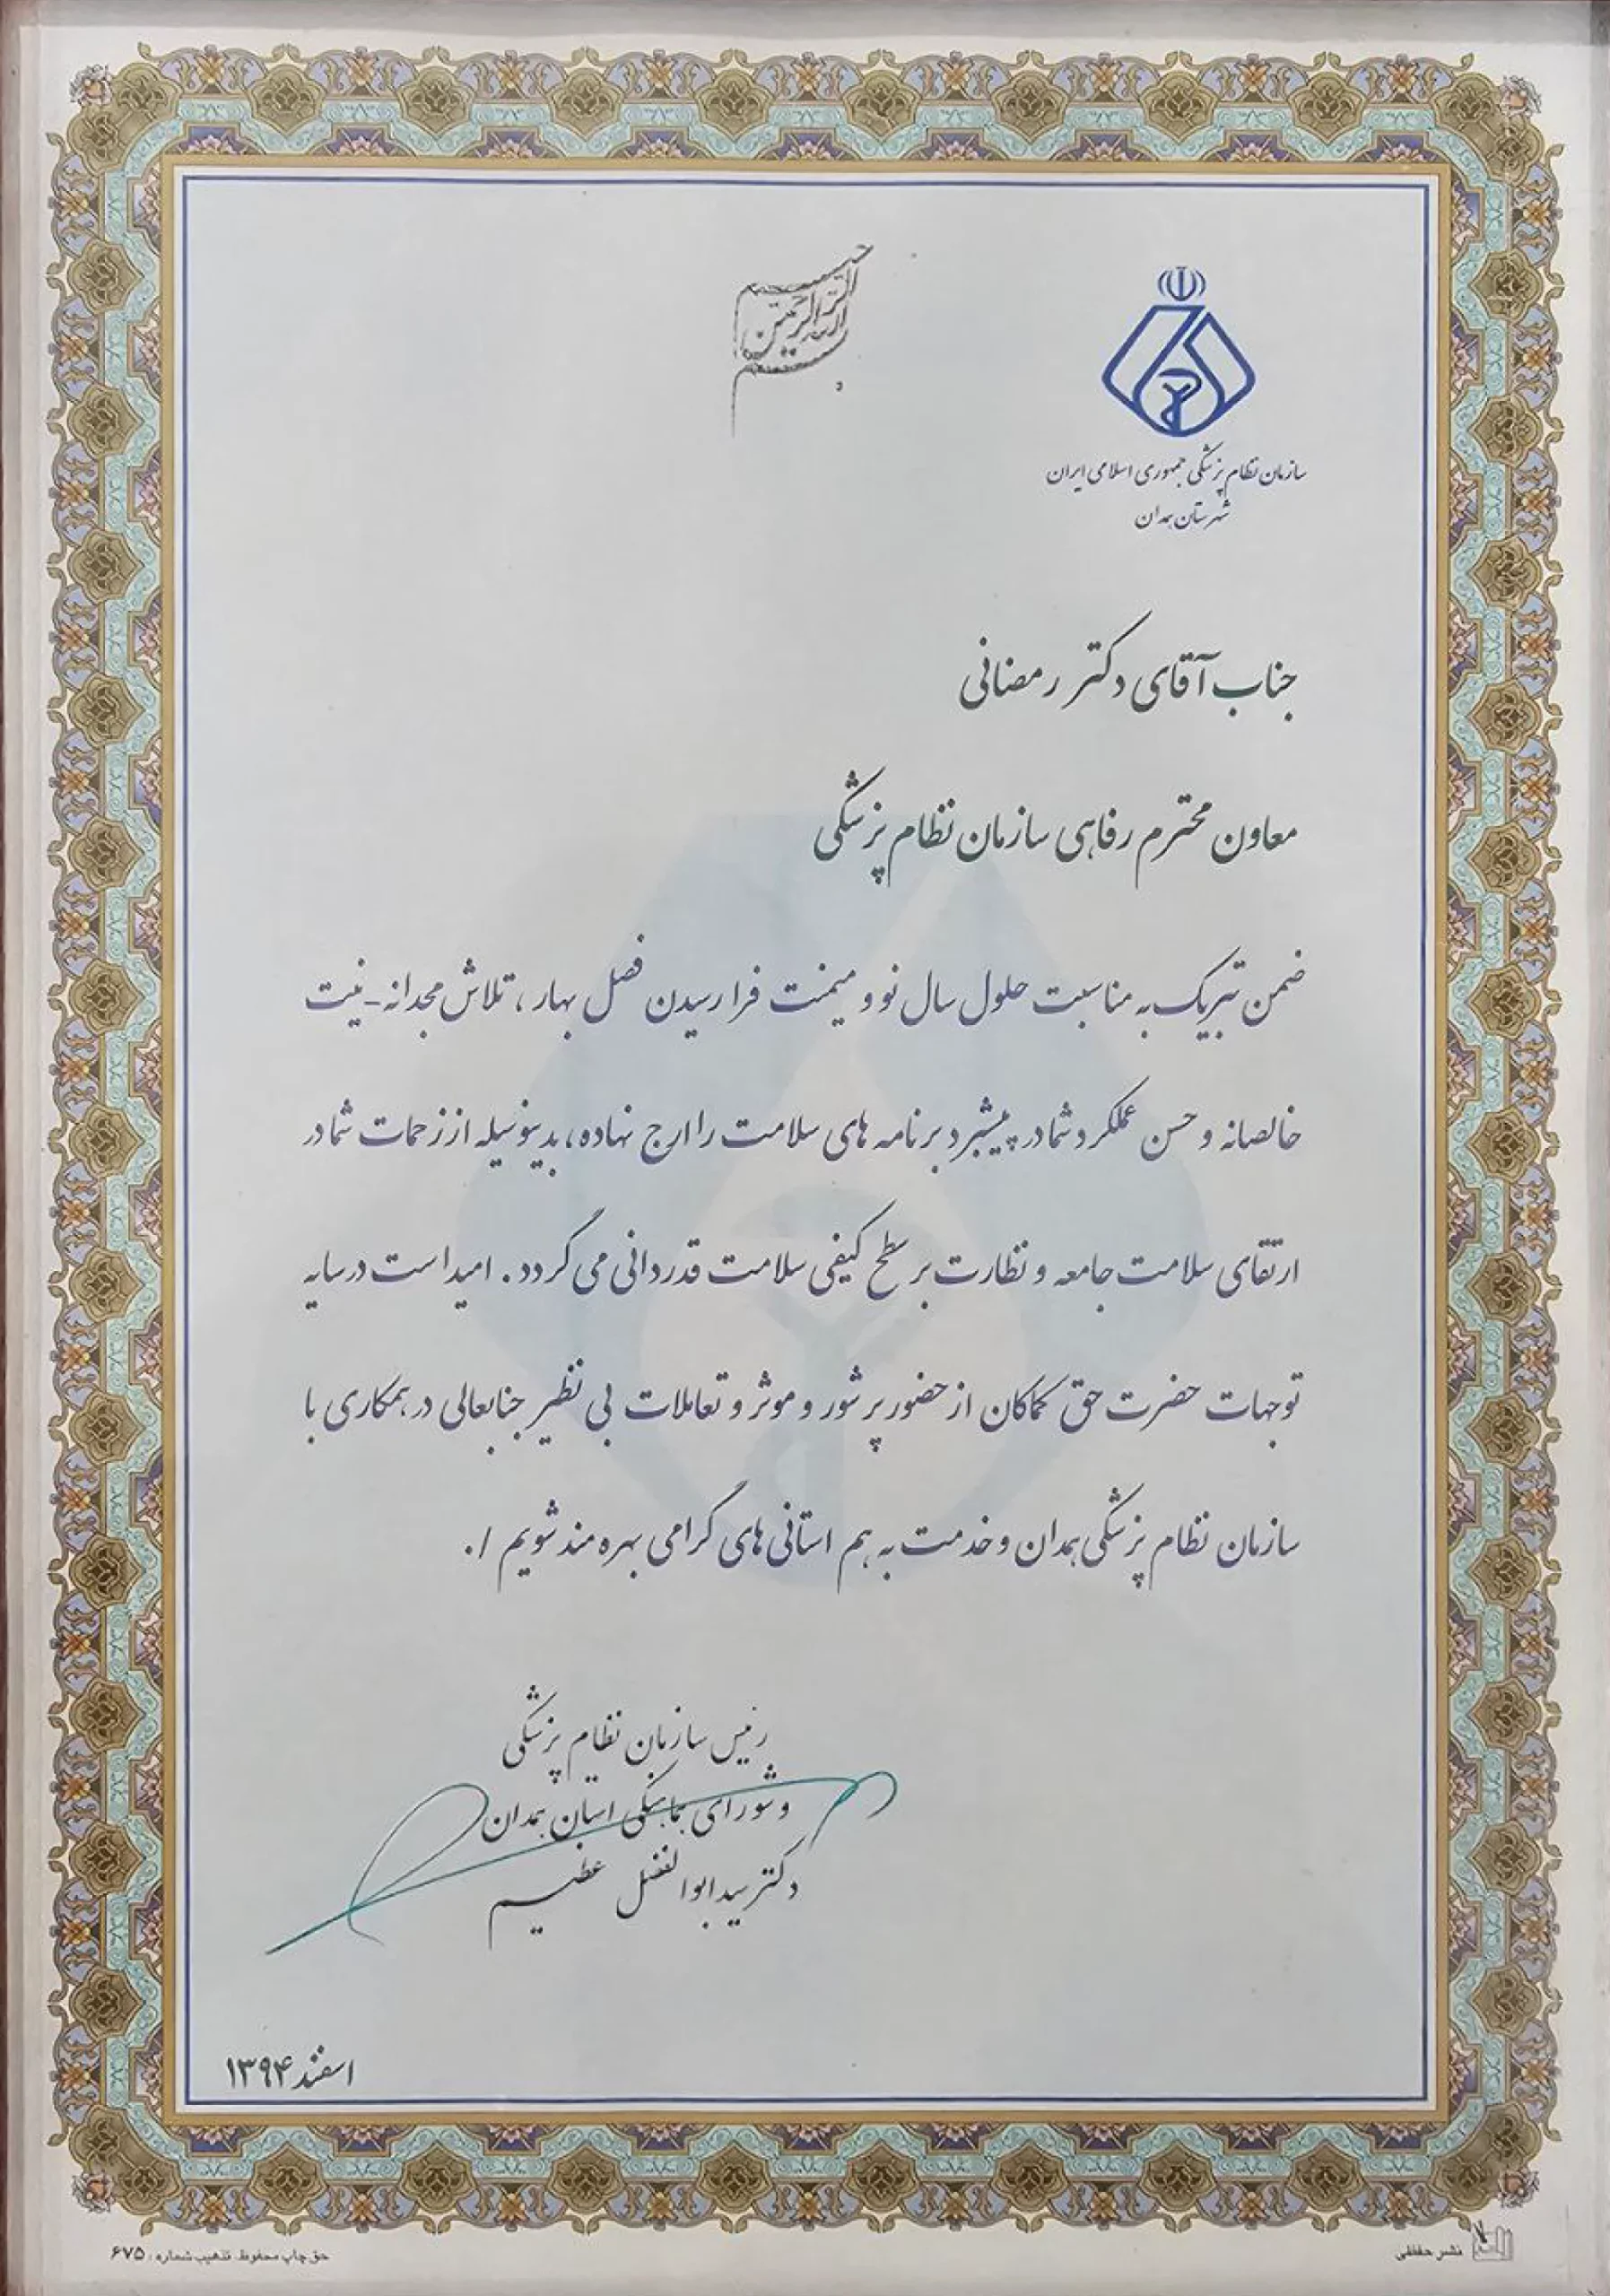 بسم الله الرحمن الرحیم
سازمان نظام پزشکی جمهوری اسلامی ایران
شهرستان همدان
جناب آقای دکتر رمضانی
معاون محترم رفاهی سازمان نظام پزشکی
ضمن تبریک به مناسبت حلول سال نو و میمنت فرا رسیدن فصل بهار، تلاش مجدانه - نیت
خالصانه و حسن عملکرد شما در پیشبرد برنامه های سلامت را ارج نهاده، بدینوسیله از زحمات شما در
ارتقای سلامت جامعه و نظارت بر سطح کیفی سلامت قدردانی می گردد. امید است در سایه
توجهات حضرت حق کماکان از حضور پر شور و موثر و تعاملات بی نظیر جنابعالی در همکاری با
سازمان نظام پزشکی همدان و خدمت به هم استانی های گرامی بهره مند شویم ./
رئیس سازمان نظام پزشکی
و شورای هماهنگی استان همدان
دکتر سید ابوالفضل عظیم
اسفند ۱۳۹۴
نشر حفظی
حق چاپ محفوظ. تذهیب شماره: ۶۷۵